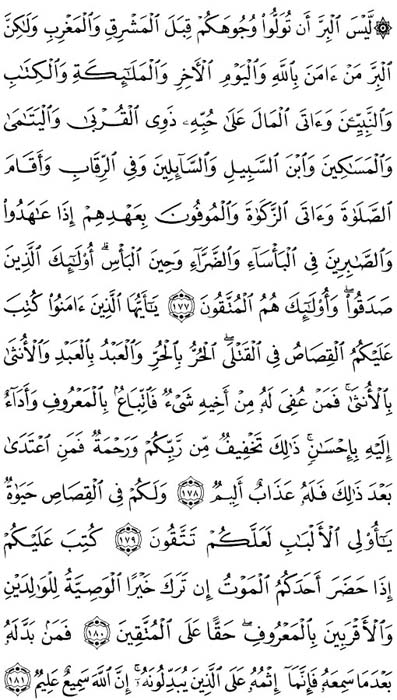 ۞ لَّيۡسَ ٱلۡبِرَّ أَن تُوَلُّواْ وُجُوهَكُمۡ قِبَلَ ٱلۡمَشۡرِقِ وَٱلۡمَغۡرِبِ وَلَٰكِنَّ
ٱلۡبِرَّ مَنۡ ءَامَنَ بِٱللَّهِ وَٱلۡيَوۡمِ ٱلۡأٓخِرِ وَٱلۡمَلَٰٓئِكَةِ وَٱلۡكِتَٰبِ
وَٱلنَّبِيِّـۧنَ وَءَاتَى ٱلۡمَالَ عَلَىٰ حُبِّهِۦ ذَوِي ٱلۡقُرۡبَىٰ وَٱلۡيَتَٰمَىٰ
وَٱلۡمَسَٰكِينَ وَٱبۡنَ ٱلسَّبِيلِ وَٱلسَّآئِلِينَ وَفِي ٱلرِّقَابِ وَأَقَامَ
ٱلصَّلَوٰةَ وَءَاتَى ٱلزَّكَوٰةَ وَٱلۡمُوفُونَ بِعَهۡدِهِمۡ إِذَا عَٰهَدُواْۖ
وَٱلصَّٰبِرِينَ فِي ٱلۡبَأۡسَآءِ وَٱلضَّرَّآءِ وَحِينَ ٱلۡبَأۡسِۗ أُوْلَٰٓئِكَ ٱلَّذِينَ
صَدَقُواْۖ وَأُوْلَٰٓئِكَ هُمُ ٱلۡمُتَّقُونَ ١٧٧ يَٰٓأَيُّهَا ٱلَّذِينَ ءَامَنُواْ كُتِبَ
عَلَيۡكُمُ ٱلۡقِصَاصُ فِي ٱلۡقَتۡلَىۖ ٱلۡحُرُّ بِٱلۡحُرِّ وَٱلۡعَبۡدُ بِٱلۡعَبۡدِ وَٱلۡأُنثَىٰ
بِٱلۡأُنثَىٰۚ فَمَنۡ عُفِيَ لَهُۥ مِنۡ أَخِيهِ شَيۡءٞ فَٱتِّبَاعُۢ بِٱلۡمَعۡرُوفِ وَأَدَآءٌ
إِلَيۡهِ بِإِحۡسَٰنٖۗ ذَٰلِكَ تَخۡفِيفٞ مِّن رَّبِّكُمۡ وَرَحۡمَةٞۗ فَمَنِ ٱعۡتَدَىٰ
بَعۡدَ ذَٰلِكَ فَلَهُۥ عَذَابٌ أَلِيمٞ ١٧٨ وَلَكُمۡ فِي ٱلۡقِصَاصِ حَيَوٰةٞ
يَٰٓأُوْلِي ٱلۡأَلۡبَٰبِ لَعَلَّكُمۡ تَتَّقُونَ ١٧٩ كُتِبَ عَلَيۡكُمۡ
إِذَا حَضَرَ أَحَدَكُمُ ٱلۡمَوۡتُ إِن تَرَكَ خَيۡرًا ٱلۡوَصِيَّةُ لِلۡوَٰلِدَيۡنِ
وَٱلۡأَقۡرَبِينَ بِٱلۡمَعۡرُوفِۖ حَقًّا عَلَى ٱلۡمُتَّقِينَ ١٨٠ فَمَنۢ بَدَّلَهُۥ
بَعۡدَمَا سَمِعَهُۥ فَإِنَّمَآ إِثۡمُهُۥ عَلَى ٱلَّذِينَ يُبَدِّلُونَهُۥٓۚ إِنَّ ٱللَّهَ سَمِيعٌ عَلِيمٞ ١٨١